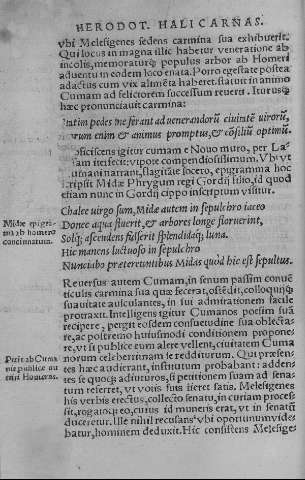 HERODOT. HALICARNAS.
vbi Melesigenes sedens carmina sua exhibuerit.
Qui locus in magna illic habetur veneratione ab
incolis, memoraturq; populus arbor ab Homeri
aduentu in eodem loco enata. Porro egestate postea
adactus cum vix alimēta haberet, statuit in animo
Cumam ad feliciorem successum reuerti. Iturusq;
hæc pronunciauit carmina:
pedes me ferant ad uenerandorū ciuium uirorū,
enim & animus promptus, & cōsiliū optimū.
igitur Cumam e Nouo muro, per La
iter fecit: vtpote compendiosissimum. Vbi vt
narrant, flagitāte socero, epigramma hoc
Midæ Phrygum regi Gordij filio, id quod
etiam nunc in Gordij cippo inscriptum visitur.
Midæ epigrā
ma ab homero
concinnatum.
Chalcea uirgo sum, Midæ autem in sepulchro iaceo
Donec aqua fluerit, & arbores longæ floruerint,
Solq; ascendens fulserit splendidaq; luna.
Hic manens luctuoso in sepulchro
Nunciabo prætereuntibus Midas quòd hic est sepultus.
Reuersus autem Cumam, in senum passim conuē
ticulis carmina sua quæ fecerat, ostēdit, colloquiorūq;
suauitate auscultantes, in sui admirationem facile
protraxit. Intelligens igitur Cumanos poesim suā
recipere, pergit eosdem consuetudine sua oblecta-
re, ac postremo huiusmodi conditionem propone
re, vt si publice eum alere vellent, ciuitatem Cuma
norum celeberrimam se redditurum. Qui præsen-
tes hæc audierant, institutum probabant: adden-
tes se quoq; adiuturos, si petitionem suam ad sena-
tum referret, vt voti futis fieret satis. Melesigenes
his verbis erectus, collecto senatu, in curiam proces-
sit, rogatoq; eo, cuius id muneris erat, vt in senatū
duceretur. Ille nihil recusans vbi oportunum vide-
batur, hominem deduxit. Hic consistens Melesige-
Petit ab Cuma
nis publice au
xiri Homerus.